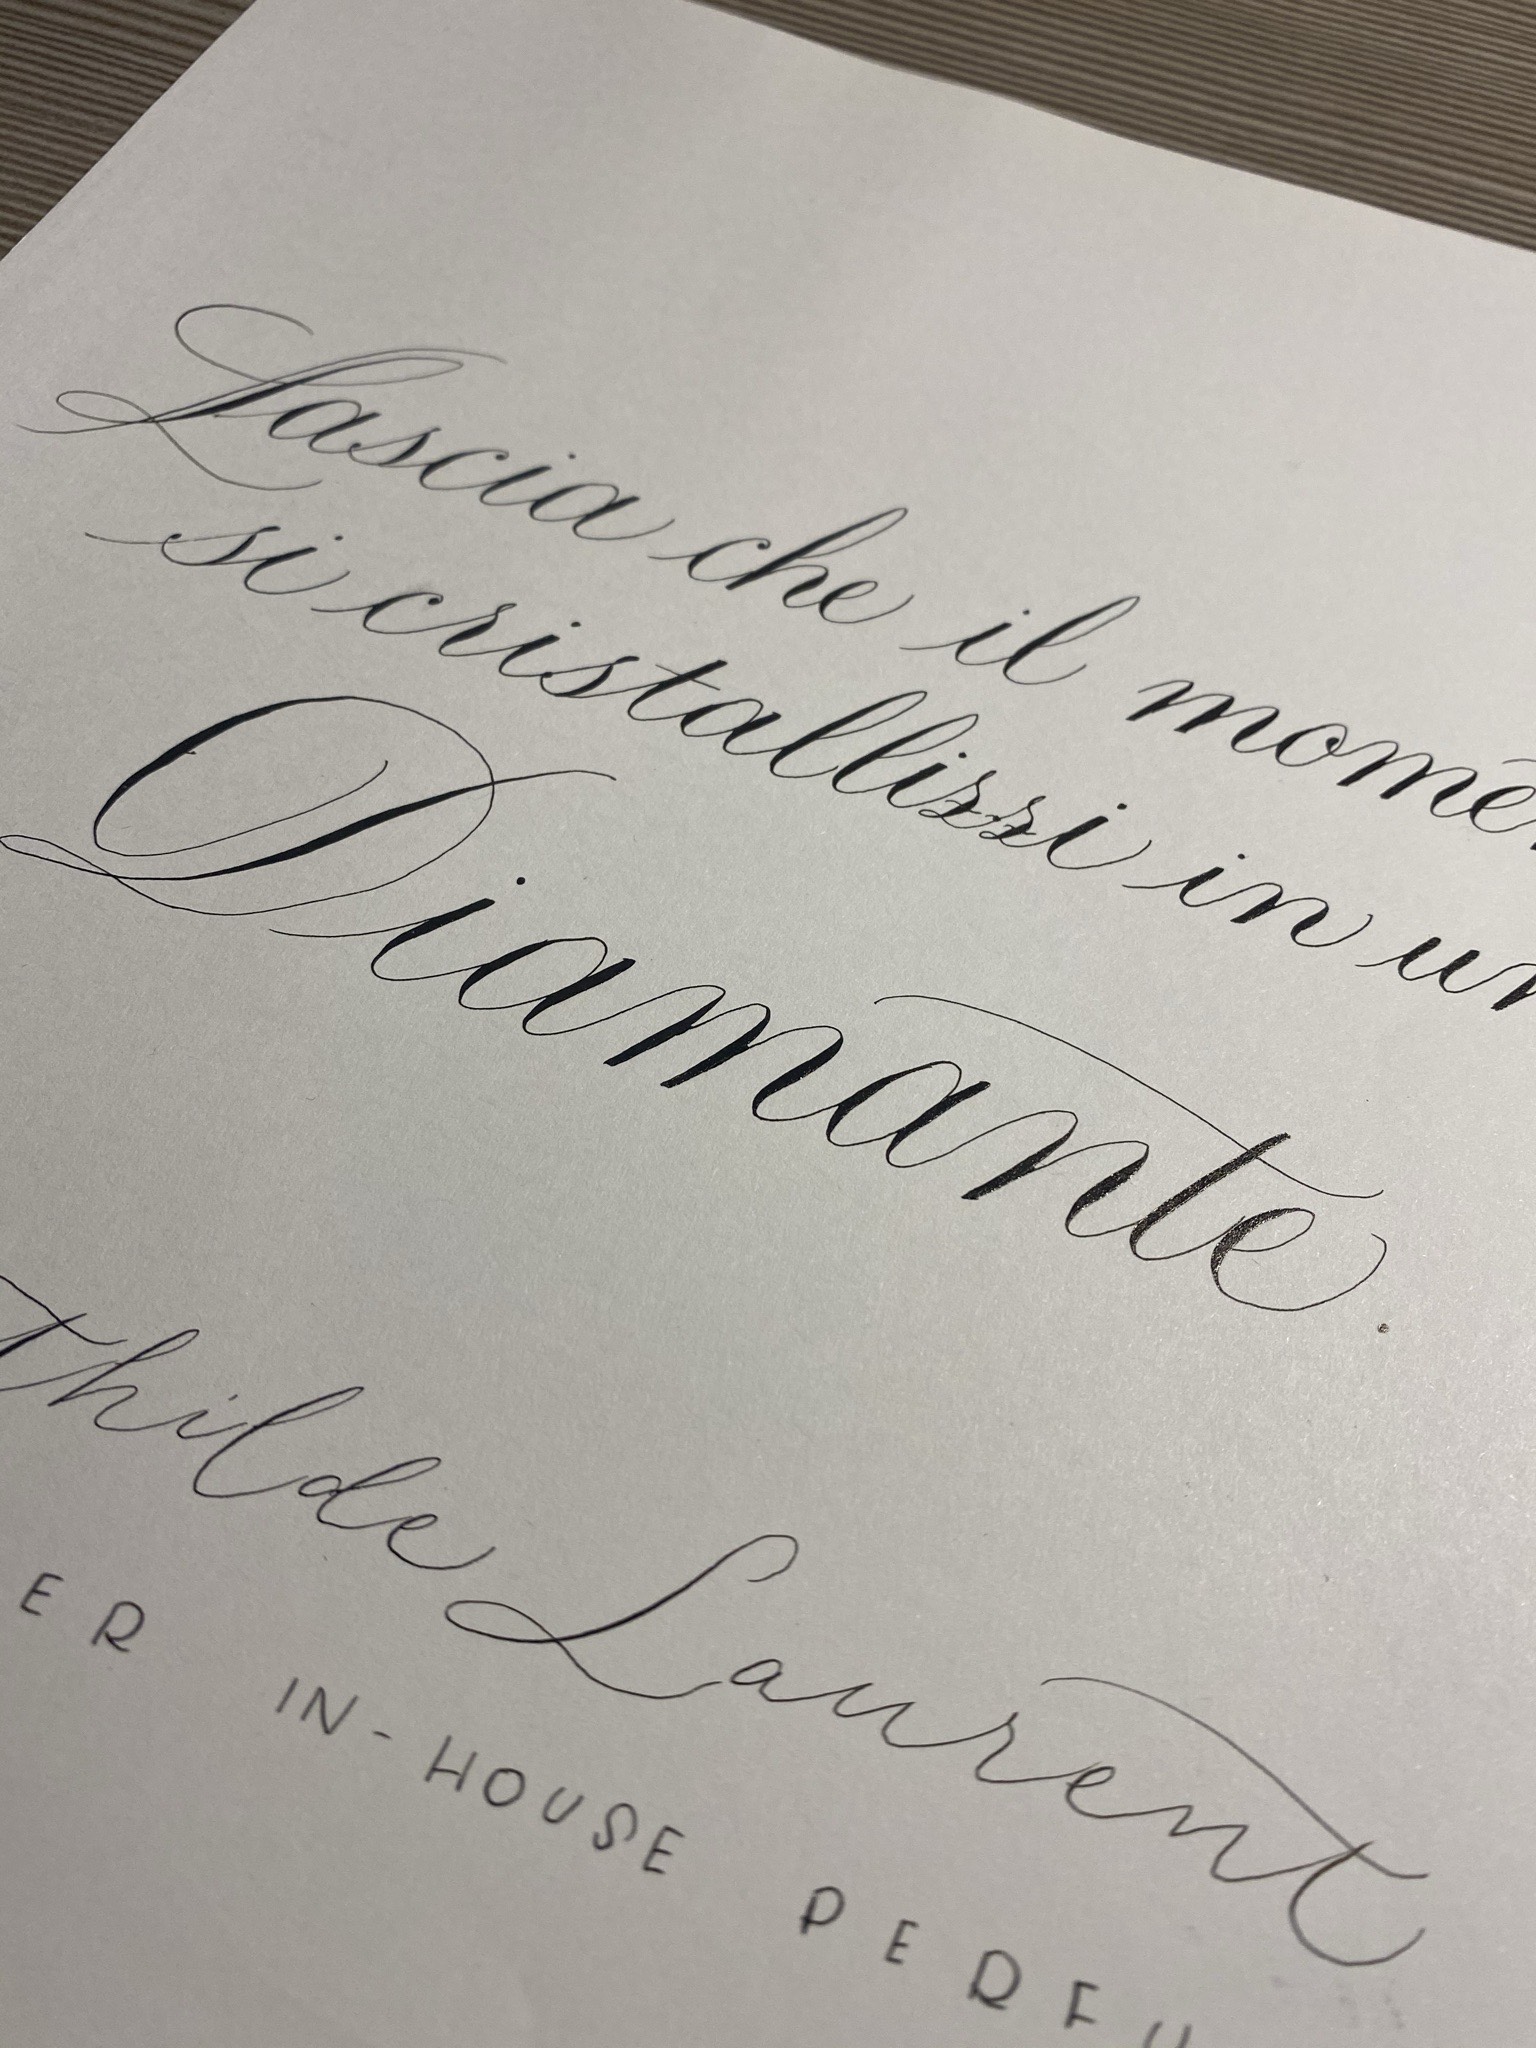 Lascia che il mome
si cristallizzi in un
Diamante.
thilde Laurent
ER IN-HOUSE PERFU